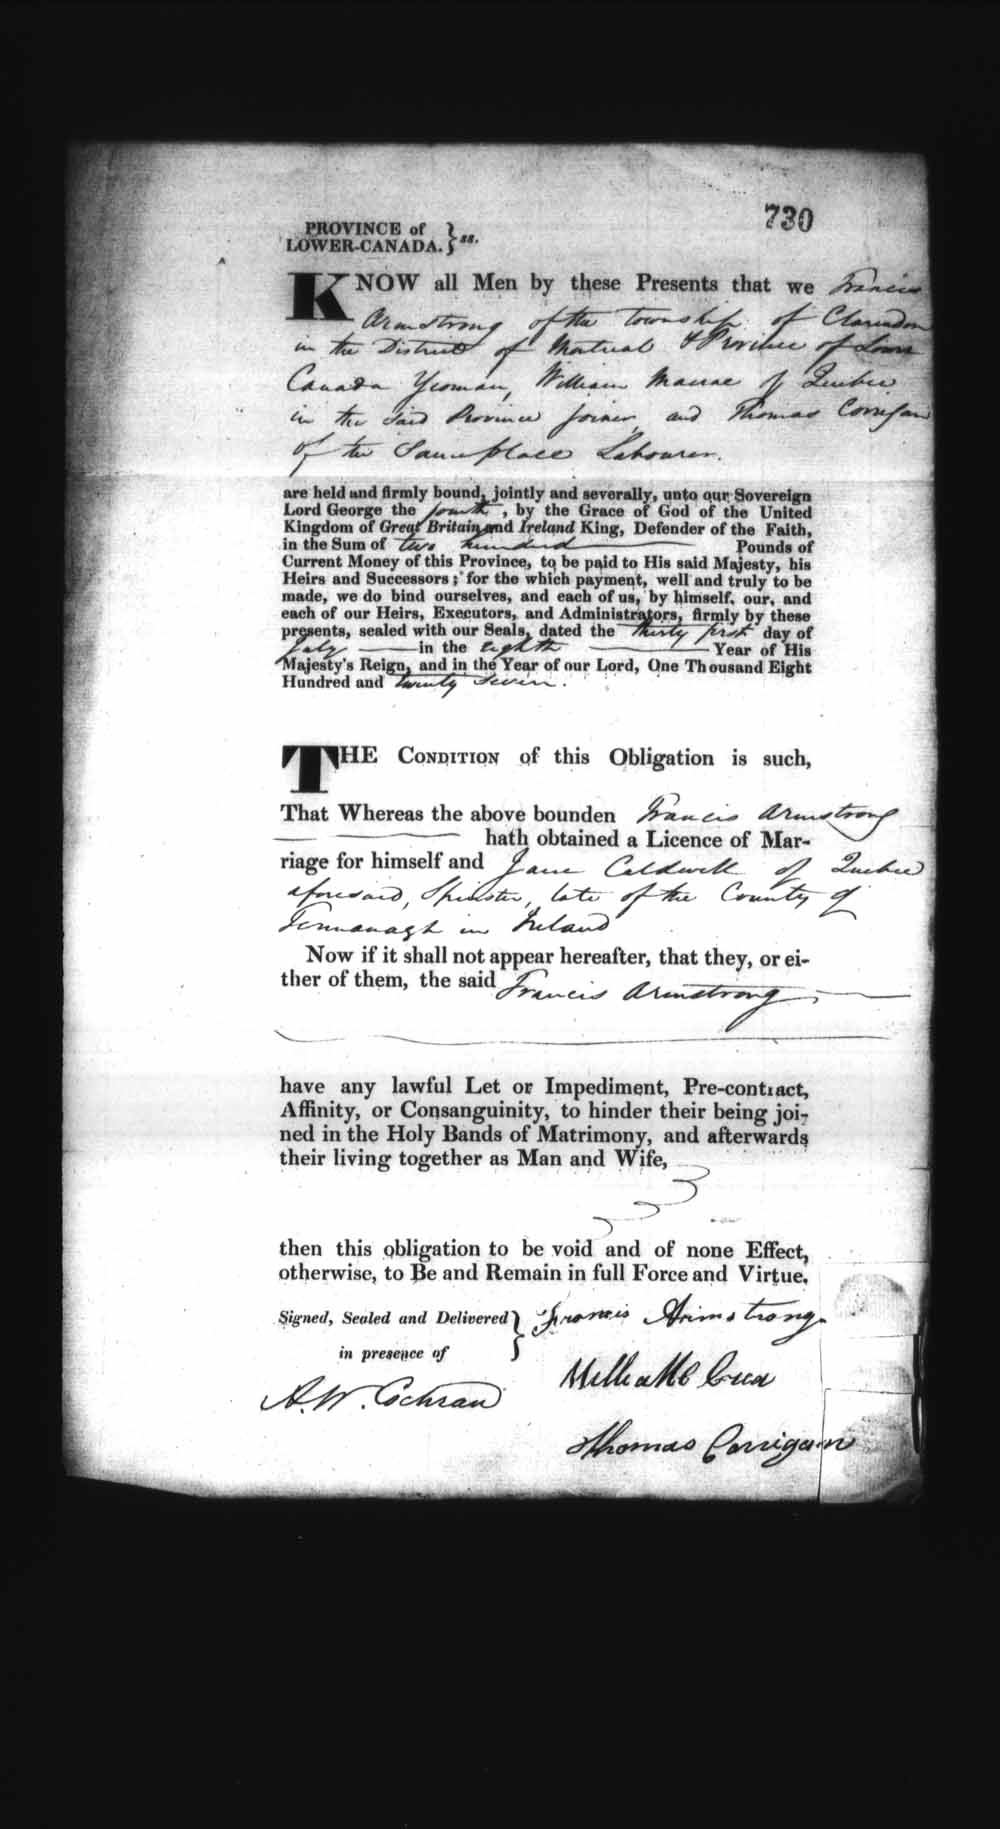 730
PROVINCE of
LOWER-CANADA. } ss.
KNOW all Men by these Presents that we Francis
Armstrong of the township of Clarendon
in the District of Montreal & Province of Lower
Canada Yeoman, William of Quebec
in the said Province Joiner, and Thomas Corrigan
of the same place Labourer.
are held and firmly bound, jointly and severally, unto our Sovereign
Lord George the fourth, by the Grace of God of the United
Kingdom of Great Britain and Ireland King, Defender of the Faith,
in the Sum of two hundred Pounds of
Current Money of this Province, to be paid to His said Majesty, his
Heirs and Successors; for the which payment, well and truly to be
made, we do bind ourselves, and each of us, by himself, our, and
each of our Heirs, Executors, and Administrators, firmly by these
presents, sealed with our Seals, dated the thirty first day of
July in the eighth Year of His
Majesty's Reign, and in the Year of our Lord, One Thousand Eight
Hundred and twenty seven.
THE CONDITION of this Obligation is such,
That Whereas the above bounden Francis Armstrong
hath obtained a Licence of Mar-
riage for himself and Jane Caldwell of Quebec
aforesaid, Spinster, late of the County of
Fermanagh in Ireland
Now if it shall not appear hereafter, that they, or ei-
ther of them, the said Francis Armstrong,
have any lawful Let or Impediment, Pre-contract,
Affinity, or Consanguinity, to hinder their being joi-
ned in the Holy Bands of Matrimony, and afterwards
their living together as Man and Wife,
then this obligation to be void and of none Effect,
otherwise, to Be and Remain in full Force and Virtue.
Signed, Sealed and Delivered } Francis Armstrong
in presence of
A. W. Cochran
Thomas Corrigan